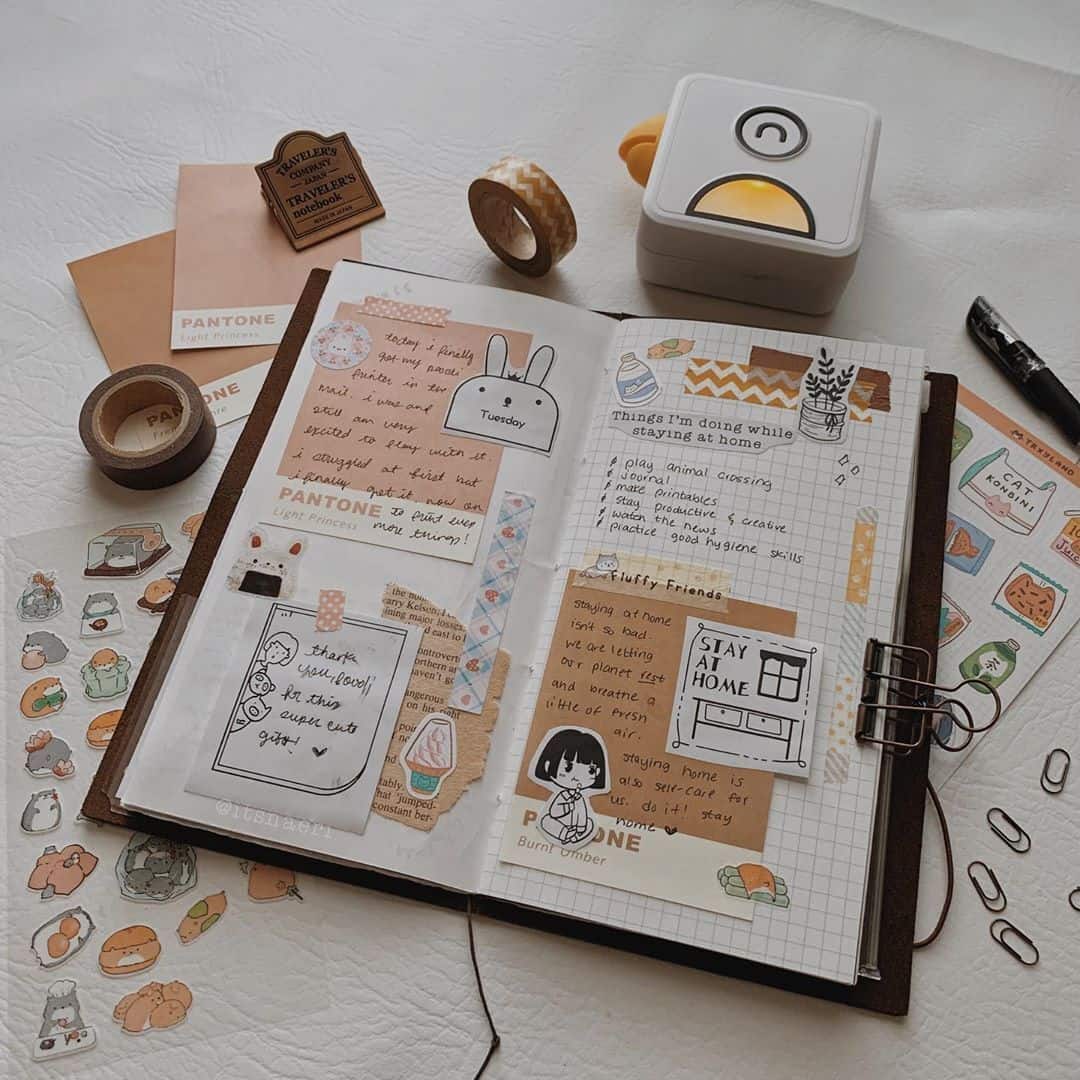 TRAVELER'S
COMPANY
JAPAN
TRAVELER'S
notebook
MADE IN JAPAN
PANTONE
Light Princess
PANTONE
PANTONE
today i finally
got my
printer in the
mail. i was and
still am very
excited to play with it.
i struggled at first but
i finally got it now on
to print even
more things!
PANTONE
Light Princess
Tuesday
thank
you,
for this
super cute
gift! ♥
carry Kelsen,
ining major losses
east to
controverti
northern a
haven't
angerous
on his
right
point
tably
that 'jumped-
constant ber-
@itsnaeri
Things I'm doing while
staying at home
play animal crossing
journal
make printables
stay productive & creative
watch the news
practice good hygiene skills
Fluffy Friends
staying at home
isn't so bad.
we are letting
our planet rest
and breathe a
little of fresh
air.
staying home is
also self-care for
us. do it! stay
home ♥
STAY
AT
HOME
P ONE
Burnt Umber
TRXYLAND
CAT
KONBINI
Juice